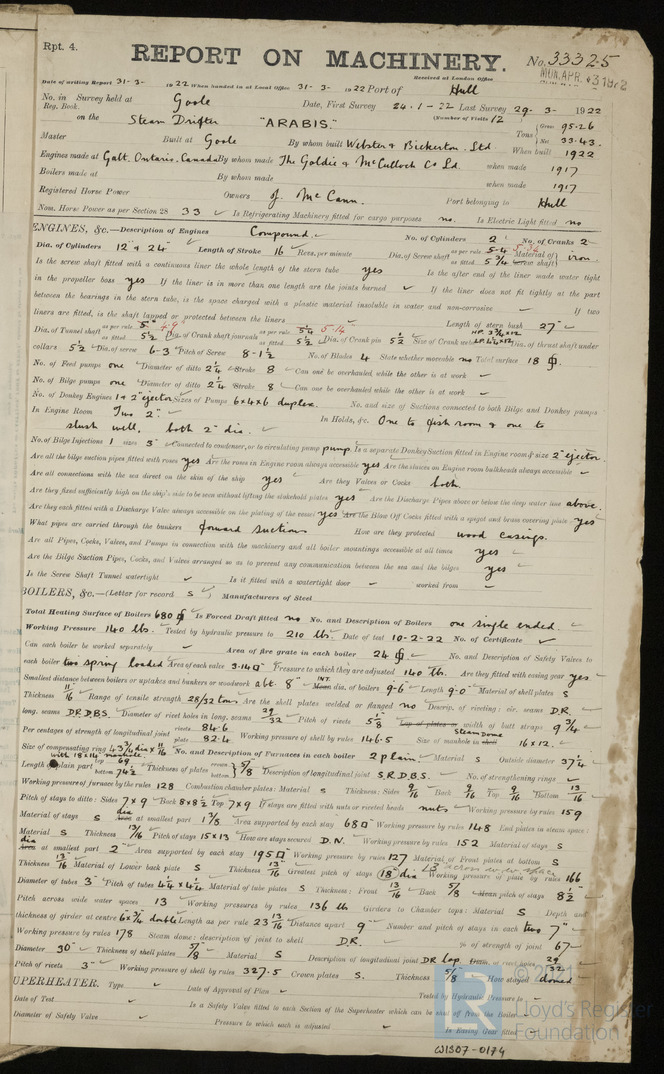 Rpt. 4.
REPORT ON MACHINERY.
No. 33325
Received at London Office
MON. APR. 3 1922
Date of writing Report 31-3- 1922 When handed in at Local Office 31-3-1922 Port of Hull
No. in Survey held at Goole Date, First Survey 24-1-22 Last Survey 29-3-1922
Reg. Book. (Number of Visits 12
on the Steam Drifter "ARABIS." Tons Gross 95.26 Net 33.43.
Master Built at Goole By whom built Webster & Bickerton. Ltd When built 1922
Engines made at Galt. Ontario. Canada By whom made The Goldie & McCulloch Co Ld. when made 1917
Boilers made at By whom made when made 1917
Registered Horse Power Owners J. McCann. Port belonging to Hull
Nom. Horse Power as per Section 28 33 Is Refrigerating Machinery fitted for cargo purposes no. Is Electric Light fitted no
ENGINES, &c.—Description of Engines Compound. No. of Cylinders 2 No. of Cranks 2
Dia. of Cylinders 12" & 24" Length of Stroke 16 Revs. per minute Dia. of Screw shaft as per rule 5.4 as fitted 5 3/4 Material of screw shaft iron.
Is the screw shaft fitted with a continuous liner the whole length of the stern tube yes Is the after end of the liner made water tight
in the propeller boss yes If the liner is in more than one length are the joints burned If the liner does not fit tightly at the part
between the bearings in the stern tube, is the space charged with a plastic material insoluble in water and non-corrosive If two
liners are fitted, is the shaft lapped or protected between the liners Length of stern bush 27"
Dia. of Tunnel shaft as per rule 5" 4.9" as fitted 5 1/2 Dia. of Crank shaft journals as per rule 5.4 5.14" as fitted 5 1/2 Dia. of Crank pin 5 1/2 Size of Crank webs Dia. of thrust shaft under
collars 5 1/2 Dia. of screw 6-3 Pitch of Screw 8-1 1/2 No. of Blades 4 State whether moveable no Total surface 18
No. of Feed pumps one Diameter of ditto 2 1/4 Stroke 8 Can one be overhauled while the other is at work
No. of Bilge pumps one Diameter of ditto 2 1/4 Stroke 8 Can one be overhauled while the other is at work
No. of Donkey Engines 1 & 2" ejector Sizes of Pumps 6x4x6 duplex. No. and size of Suctions connected to both Bilge and Donkey pumps
In Engine Room Two 2" In Holds, &c. One to fish room & one to
slush well, both 2" dia.
No. of Bilge Injections 1 sizes 3" Connected to condenser, or to circulating pump pump. Is a separate Donkey Suction fitted in Engine room & size 2" ejector
Are all the bilge suction pipes fitted with roses yes Are the roses in Engine room always accessible yes Are the sluices on Engine room bulkheads always accessible
Are all connections with the sea direct on the skin of the ship yes Are they Valves or Cocks both.
Are they fixed sufficiently high on the ship's side to be seen without lifting the stokehold plates yes Are the Discharge Pipes above or below the deep water line above.
Are they each fitted with a Discharge Valve always accessible on the plating of the vessel yes Are the Blow Off Cocks fitted with a spigot and brass covering plate yes
What pipes are carried through the bunkers forward suctions How are they protected wood casings.
Are all Pipes, Cocks, Valves, and Pumps in connection with the machinery and all boiler mountings accessible at all times yes
Are the Bilge Suction Pipes, Cocks, and Valves arranged so as to prevent any communication between the sea and the bilges yes
Is the Screw Shaft Tunnel watertight Is it fitted with a watertight door worked from
BOILERS, &c.—(Letter for record S ) Manufacturers of Steel
Total Heating Surface of Boilers 680 Is Forced Draft fitted no No. and Description of Boilers one single ended.
Working Pressure 140 lbs. Tested by hydraulic pressure to 210 lbs. Date of test 10-2-22 No. of Certificate
Can each boiler be worked separately Area of fire grate in each boiler 24 No. and Description of Safety Valves to
each boiler two spring loaded Area of each valve 3.14 Pressure to which they are adjusted 140 lbs. Are they fitted with easing gear yes
Smallest distance between boilers or uptakes and bunkers or woodwork abt. 8" INT. Mean dia. of boilers 9-6 Length 9-0" Material of shell plates S
Thickness 11/16 Range of tensile strength 28/32 tons Are the shell plates welded or flanged no Descrip. of riveting: cir. seams D.R.
long. seams D.R.D.B.S. Diameter of rivet holes in long. seams 29/32 Pitch of rivets 5 1/8 Lap of plates or width of butt straps 9 3/4
Per centages of strength of longitudinal joint rivets 84.6 plate 82.4 Working pressure of shell by rules 146.5 Size of manhole in shell Steam Dome 16x12.
Size of compensating ring No. and Description of Furnaces in each boiler 2 plain. Material S Outside diameter 37 1/4
Length of plain part top 69 bottom 74 1/2 Thickness of plates crown bottom 5/8 Description of longitudinal joint S.R.D.B.S. No. of strengthening rings
Working pressure of furnace by the rules 128 Combustion chamber plates: Material S Thickness: Sides 9/16 Back 9/16 Top 9/16 Bottom 13/16
Pitch of stays to ditto: Sides 7x9 Back 8x8 1/2 Top 7x9 If stays are fitted with nuts or riveted heads nuts Working pressure by rules 159
Material of stays S dia at smallest part 1 3/8 Area supported by each stay 68 Working pressure by rules 148 End plates in steam space:
Material S Thickness 13/16 Pitch of stays 15x13 How are stays secured D.N. Working pressure by rules 152 Material of stays S
dia at smallest part 2" Area supported by each stay 195 Working pressure by rules 127 Material of Front plates at bottom S
Thickness 13/16 Material of Lower back plate S Thickness 13/16 Greatest pitch of stays 18" dia Working pressure of plate by rules 166
Diameter of tubes 3" Pitch of tubes 4 1/4 x 4 1/4 Material of tube plates S Thickness: Front 13/16 Back 5/8 Mean pitch of stays 8 1/2
Pitch across wide water spaces 13 Working pressures by rules 136 lb Girders to Chamber tops: Material S Depth and
thickness of girder at centre 6x3/8 double Length as per rule 23 13/16 Distance apart 9" Number and pitch of stays in each two 7"
Working pressure by rules 178 Steam dome: description of joint to shell D.R. % of strength of joint 67
Diameter 30" Thickness of shell plates 5/8 Material S Description of longitudinal joint DR lap Diam. of rivet holes 29/32
Pitch of rivets 3" Working pressure of shell by rules 327.5 Crown plates S. Thickness 5/8 How stayed domed
SUPERHEATER. Type Date of Approval of Plan Tested by Hydraulic Pressure to
Date of Test Is a Safety Valve fitted to each Section of the Superheater which can be shut off from the Boiler
Diameter of Safety Valve Pressure to which each is adjusted Is Easing Gear fitted
© 2021
Lloyd's Register
Foundation
W1307-0174